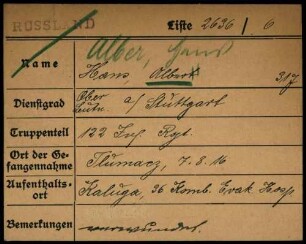 RUSSLAND Liste 2636/6
Alber, Hans
Name Hans Albert 317
Dienstgrad Ober Leutn. a/ Stuttgart
Truppenteil 122 Inf Rgt.
Ort der Gefangennahme Tlumacz, 7.8.16
Aufenthaltsort Kaluga, 36 Komb. Evak Hosp
Bemerkungen verwundet.